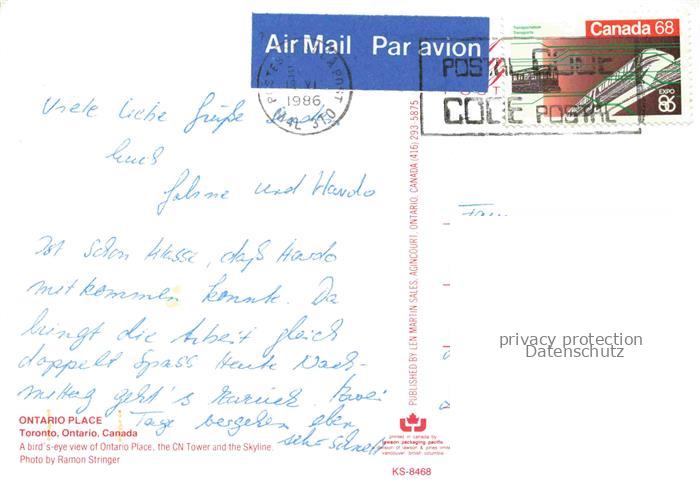 Air Mail Par avion
Transportation
Transports
Canada 68
EXPO
86
POSTAL CODE
CODE POSTAL
VI
1986
M4L 3T0
Viele liebe Grüße
Euch
und Hardo
Ist schon klasse, daß Hardo
mitkommen konnte. Da
bringt die Arbeit gleich
doppelt Spass Heute Nach-
mittag geht's zurück. Zwei
Tage vergehen eben
sehr schnell
ONTARIO PLACE
Toronto, Ontario, Canada
A bird's-eye view of Ontario Place, the CN Tower and the Skyline.
Photo by Ramon Stringer
PUBLISHED BY LEN MARTIN SALES, AGINCOURT, ONTARIO, CANADA (416) 293-5875
printed in canada by
lawson packaging pacific
division of lawson & jones
vancouver british columbia
KS-8468
privacy protection
Datenschutz